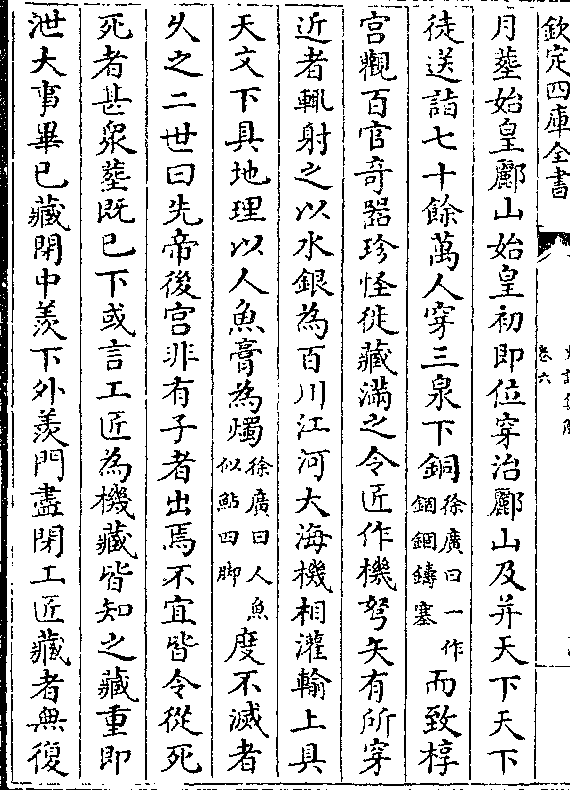 欽定四庫全書
卷六
月葬始皇酈山始皇初即位穿治酈山及并天下天下
徒送詣七十餘萬人穿三泉下銅徐廣曰一作錮錮鑄塞而致椁
宫觀百官奇器珍怪徙藏滿之令匠作機弩矢有所穿
近者輒射之以水銀為百川江河大海機相灌輸上具
天文下具地理以人魚膏為燭徐廣曰人魚似鮎四脚度不滅者
乆之二世曰先帝後宫非有子者出焉不宜皆令從死
死者甚衆葬既已下或言工匠為機藏皆知之藏重即
泄大事畢已藏閉中羨下外羨門盡閉工匠藏者無復